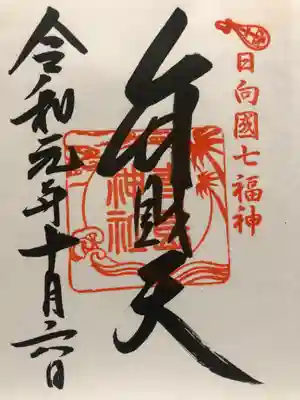 日向國七福神
弁財天
青島神社
令和元年十月六日